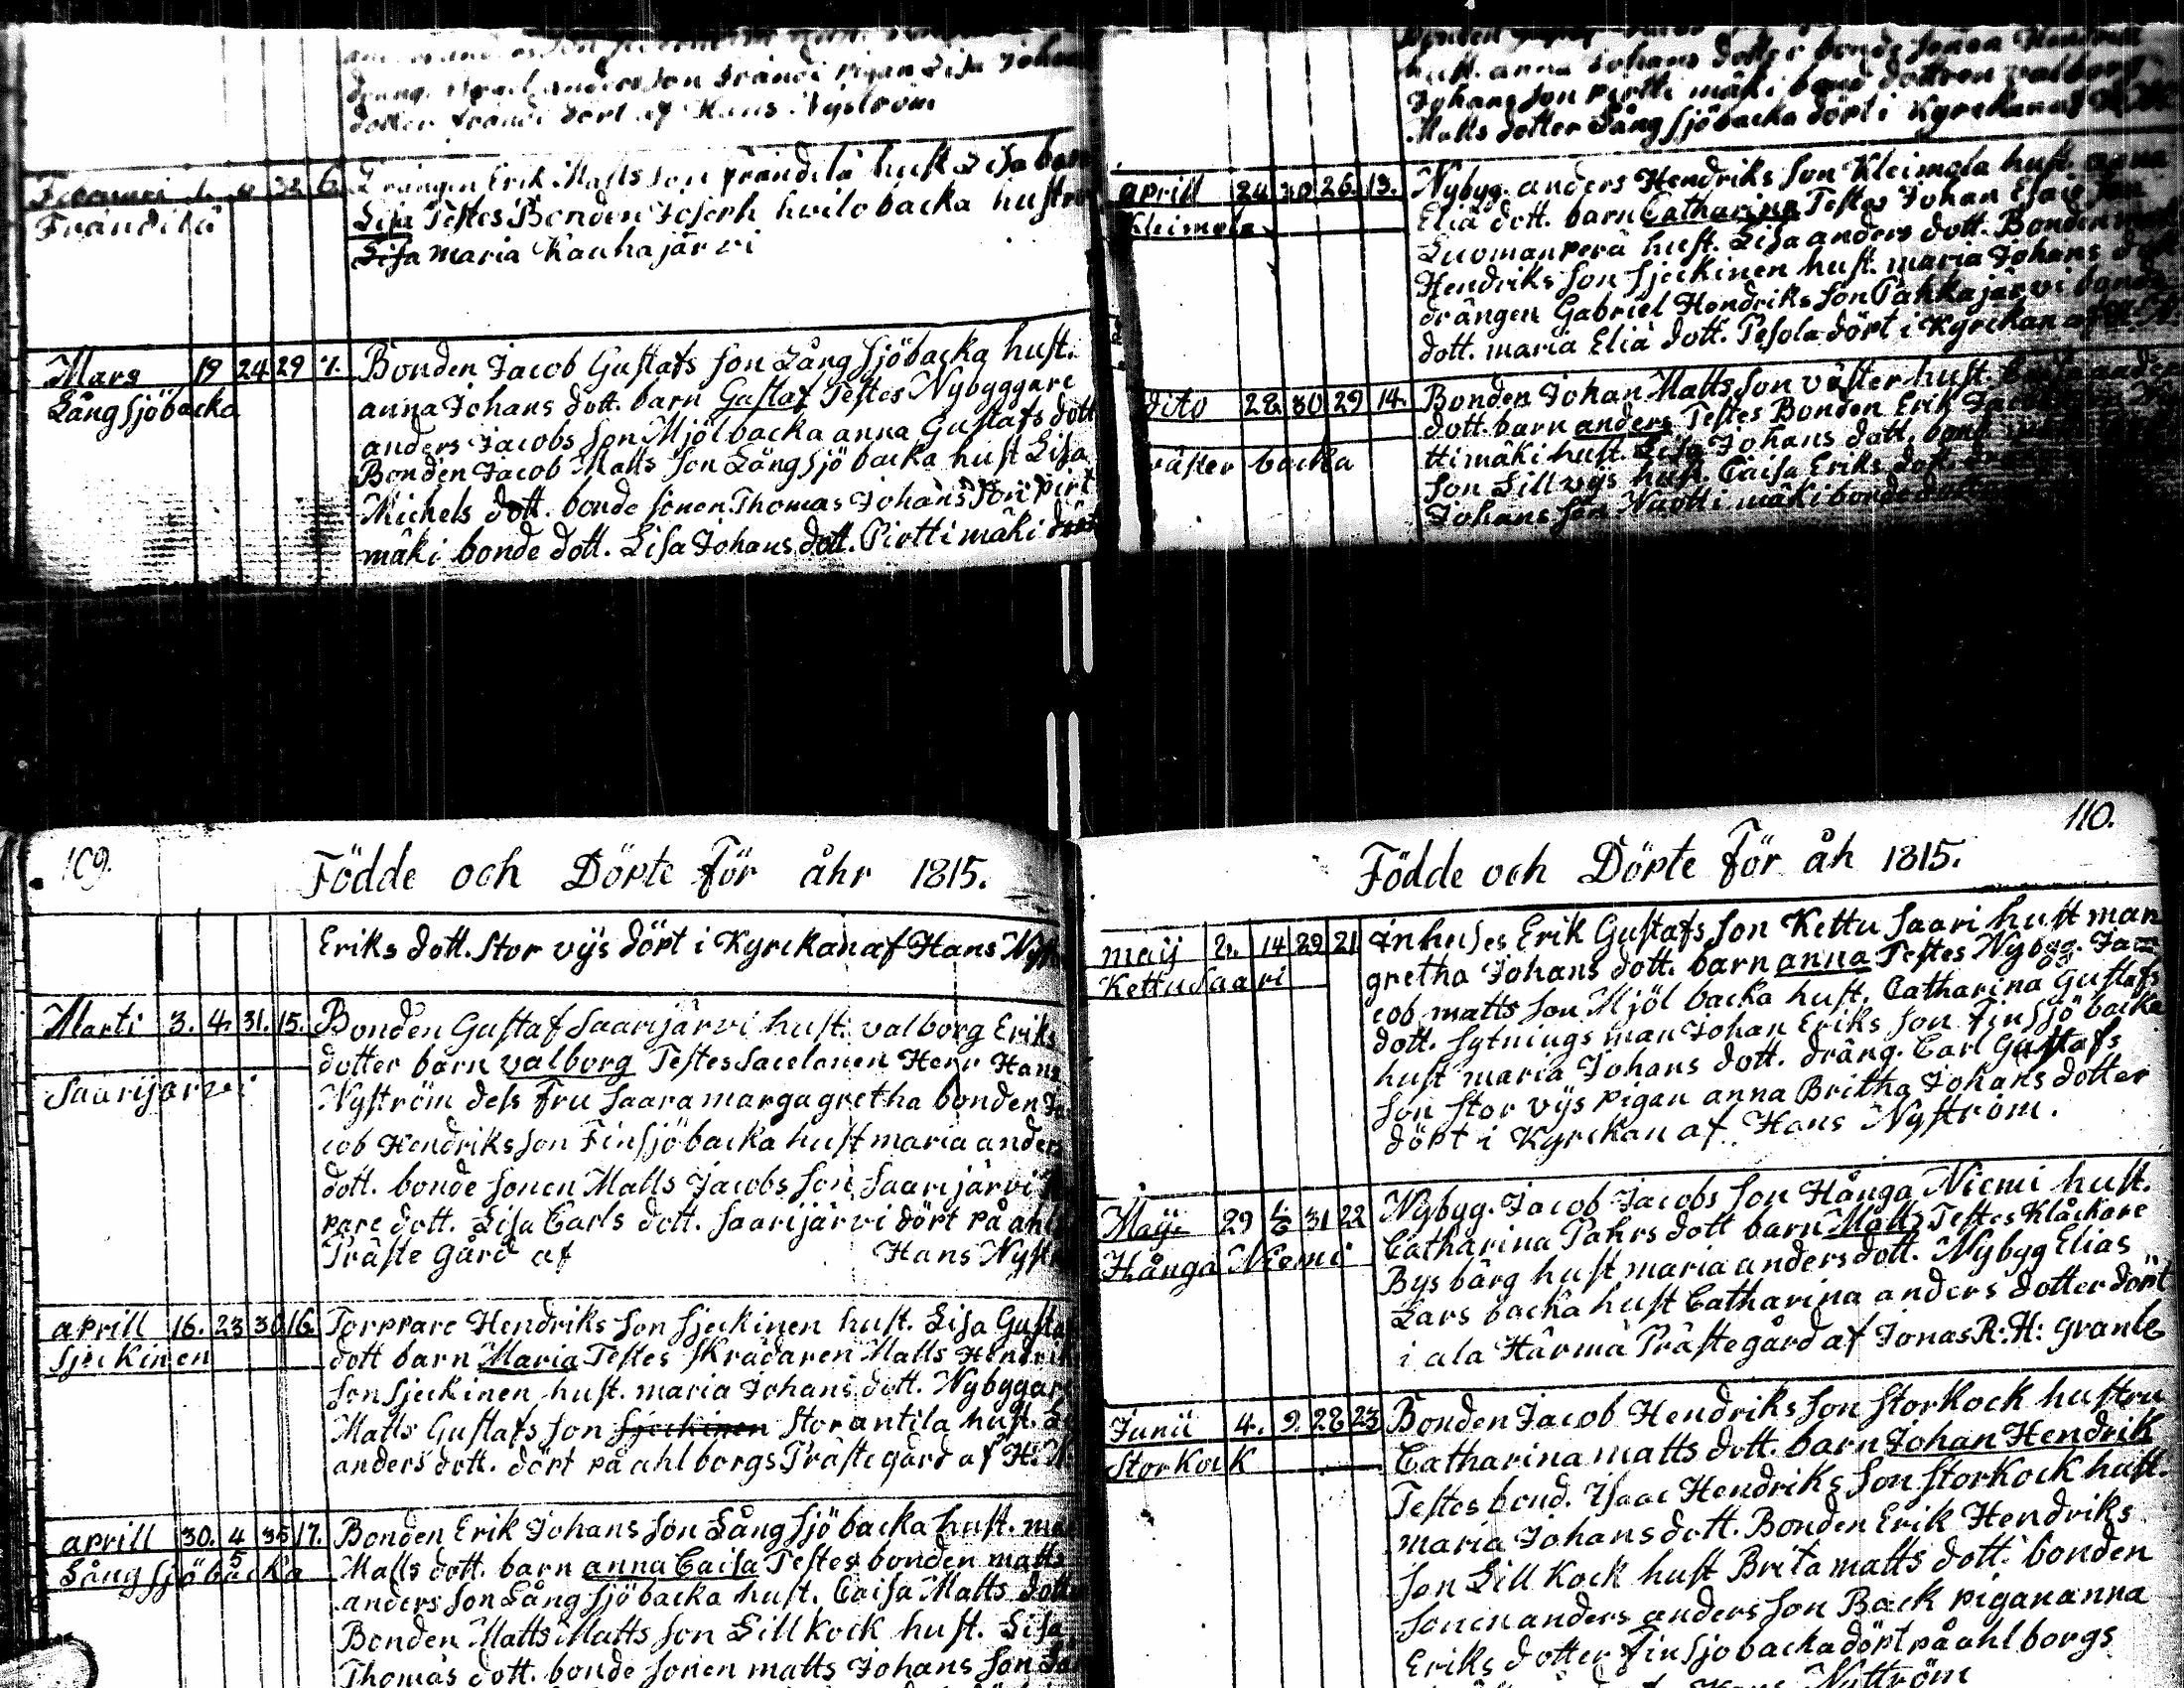 dräng. Israel anders son Frändi pigan Lisa Johans
dotter Frändi dört af Hans Nyström
Drängen Erik Matts son frändilä hust Lisa barn
Frändilä
Lisa Testes Bonden Joseph hvilo backa hustru
Lisa maria Kauhajärvi
Mars 19 24 29 7. Bonden Jacob Gustafs son Långsjöbacka hust.
Långsjöbacka
anna Johans dott. barn Gustaf Testes Nybyggare
anders Jacobs son Mjölbacka anna Gustafs dott
Bonden Jacob Matts son Långsjöbacka hust Lisa
Michels dott. bonde sonen Thomas Johans son pirt
mäki bonde dott. Lisa Johans dott. Pirttimäki dört
hust. anna Johans dotter bonde sonen
Johans son pirtti mäki bond dottren valborg
Matts dotter Långsjöbacka dört i Kyrckan af
aprill 24 30 26. 13. Nybyg. anders Hendriks son Kleimola hust. anna
Kleimola
Eliä dott. barn Catharina Testes Johan Esaie son
Luomanperä hust. Lisa anders dott. Bonden
Hendriks son sjeckinen hust. maria Johans dott
drängen Gabriel Hendriks son Pahkajärvi bonde
dott. maria Eliä dott. Pesola dört i Kyrckan af
dito 28. 30 29 14. Bonden Johan Matts son väster hust.
dott. barn anders Testes Bonden Erik
väster backa
ttimäki hust. Lisa Johans dott. bond
son Lill vijs hust. Caisa Eriks dott.
Johans son Nuotti mäki bonde
109.
Födde och Döpte för åhr 1815.
Eriks dott. Stor vijs dört i Kyrckan af Hans
Marti 3. 4. 31. 15. Bonden Gustaf Saarijärvi hust. valborg Eriks
dotter barn valborg Testes Sacelanen Herr Hans
Saarijärvi
Nyström dess Fru Saara margagretha bonden Ja
cob Hendriks son Finsjöbacka hust maria anders
dott. bonde sonen Matts Jacobs son Saarijärvi
pare dott. Lisa Carls dott. Saarijärvi dört på ahl
Präste gård af Hans Nyst
aprill 16. 23 30 16. Torppare Hendriks son sjeckinen hust. Lisa Gusta
sjeckinen
dott barn Maria Testes skrädaren Matts Hendrik
son sjeckinen hust. maria Johans dott. Nybyggar
Matts Gustafs son sjeckinen Storantila hust.
anders dott. dört på ahlborgs Prästegård af H. N.
aprill 30. 4/5 35 17. Bonden Erik Johans son Långsjöbacka hust. ma
Långsjöbacka
Matts dott. barn anna Caisa Testes bonden matts
anders son Långsjöbacka hust. Caisa Matts dotte
Bonden Matts Matts son Lill kock hust. Lisa
Thomas dott. bonde sonen matts Johans son
110.
Födde och Döpte för åh 1815.
maij 2. 14 29 21 inhuses Erik Gustafs son Kettu Saari hust mar
Kettu Saari
gretha Johans dott. barn anna Testes Nybgg. Ja
cob matts son Mjöl backa hust. Catharina Gustafs
dott. sytnings man Johan Eriks son Finsjö backa
hust maria Johans dott. dräng. Carl Gustafs
son stor vijs pigan anna Britha Johans dotter
dört i Kyrckan af Hans Nyström.
Maij 29 1/6 31 22 Nybyg. Jacob Jacobs son Hånga Niemi hust.
Hånga Niemi
Catharina Pahrs dott barn Matts Testes Klåckare
Bysbärg hust maria anders dott. Nybyg Elias
Lars backa hust Catharina anders dotter dört
i ala Härmä Prästegård af Jonas R: H: granle
Junii 4. 9. 28 23 Bonden Jacob Hendriks son Storkock hustru
Storkock
Catharina matts dott. barn Johan Hendrik
Testes bond. Isaac Hendriks son Storkock hust.
maria Johans dott. Bonden Erik Hendriks
son Lill Kock hust Brita matts dott. bonden
sonen anders anders son Back pigan anna
Eriks dotter Finsjöbacka dört på ahlborgs
Nyttröm